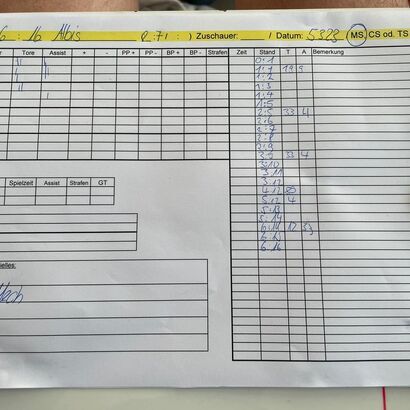 6 : 16 Albis ( : ) Zuschauer: / Datum: 5323 MS CS od. TS
Tore Assist + - PP + PP - BP + BP - Strafen Zeit Stand T A Bemerkung
0:1
1:1 19 9
1:2
1:3
1:4
1:5
2:5 33 4
2:6
2:7
2:8
2:9
3:9 33 4
3:10
3:11
3:12
4:12
5:12 4
5:13
5:14
6:14 17 33
6:15
6:16
Spielzeit Assist Strafen GT
ielles: